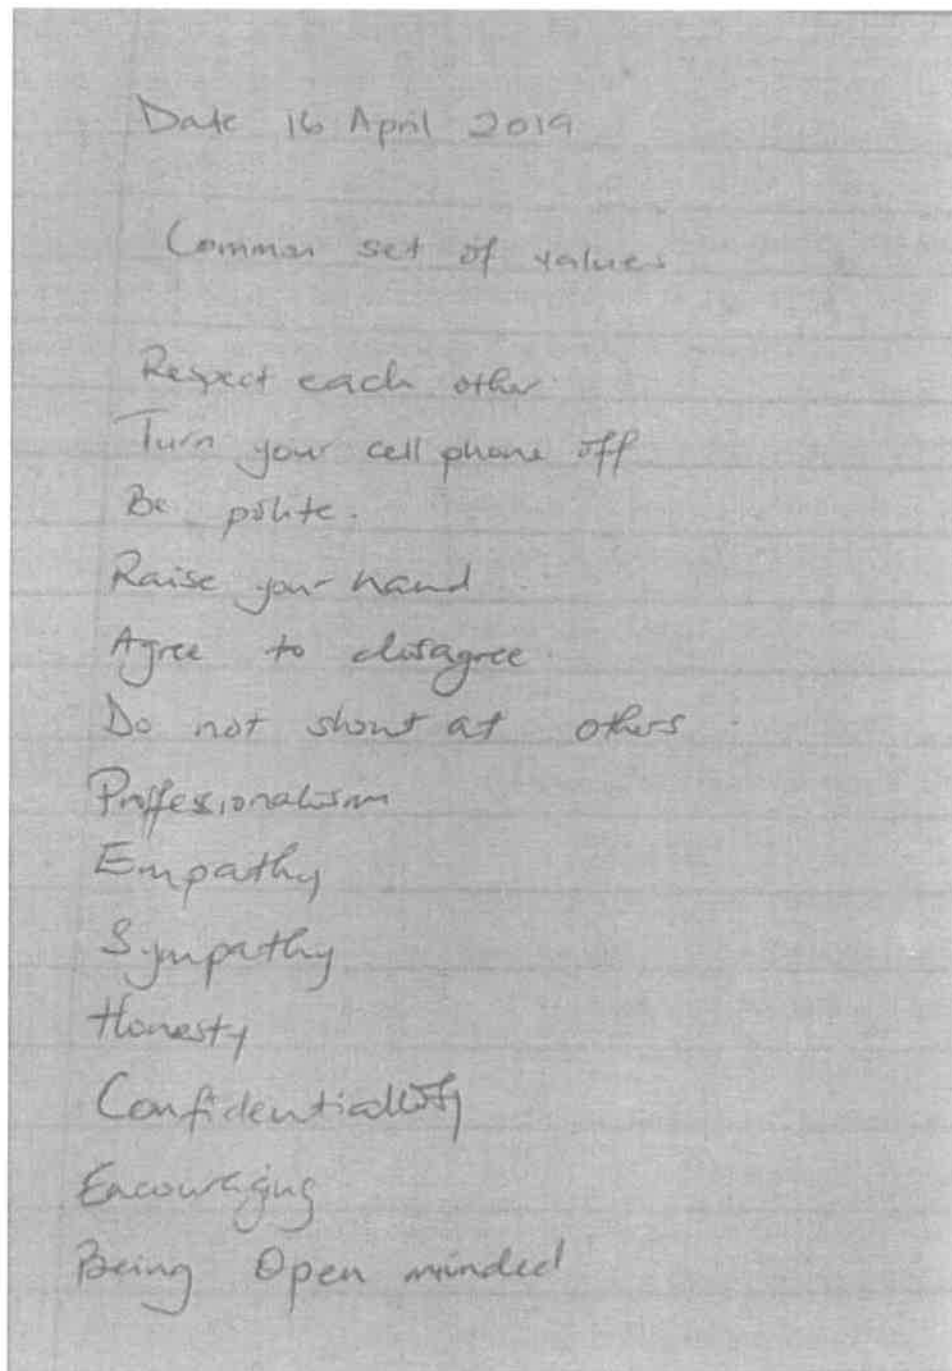 Date 16 April 2019
Common set of values
Respect each other.
Turn your cell phone off
Be polite.
Raise your hand.
Agree to disagree.
Do not shout at others.
Proffessionalism
Empathy
Sympathy
Honesty
Confidentiality
Encouraging
Being Open minded